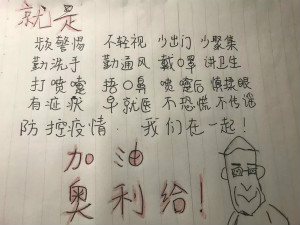 就是
频警惕 不轻视 少出门 少聚集
勤洗手 勤通风 戴口罩 讲卫生
打喷嚏 捂口鼻 喷嚏后 慎揉眼
有症状 早就医 不恐慌 不传谣
防控疫情，我们在一起！
加油
奥利给！